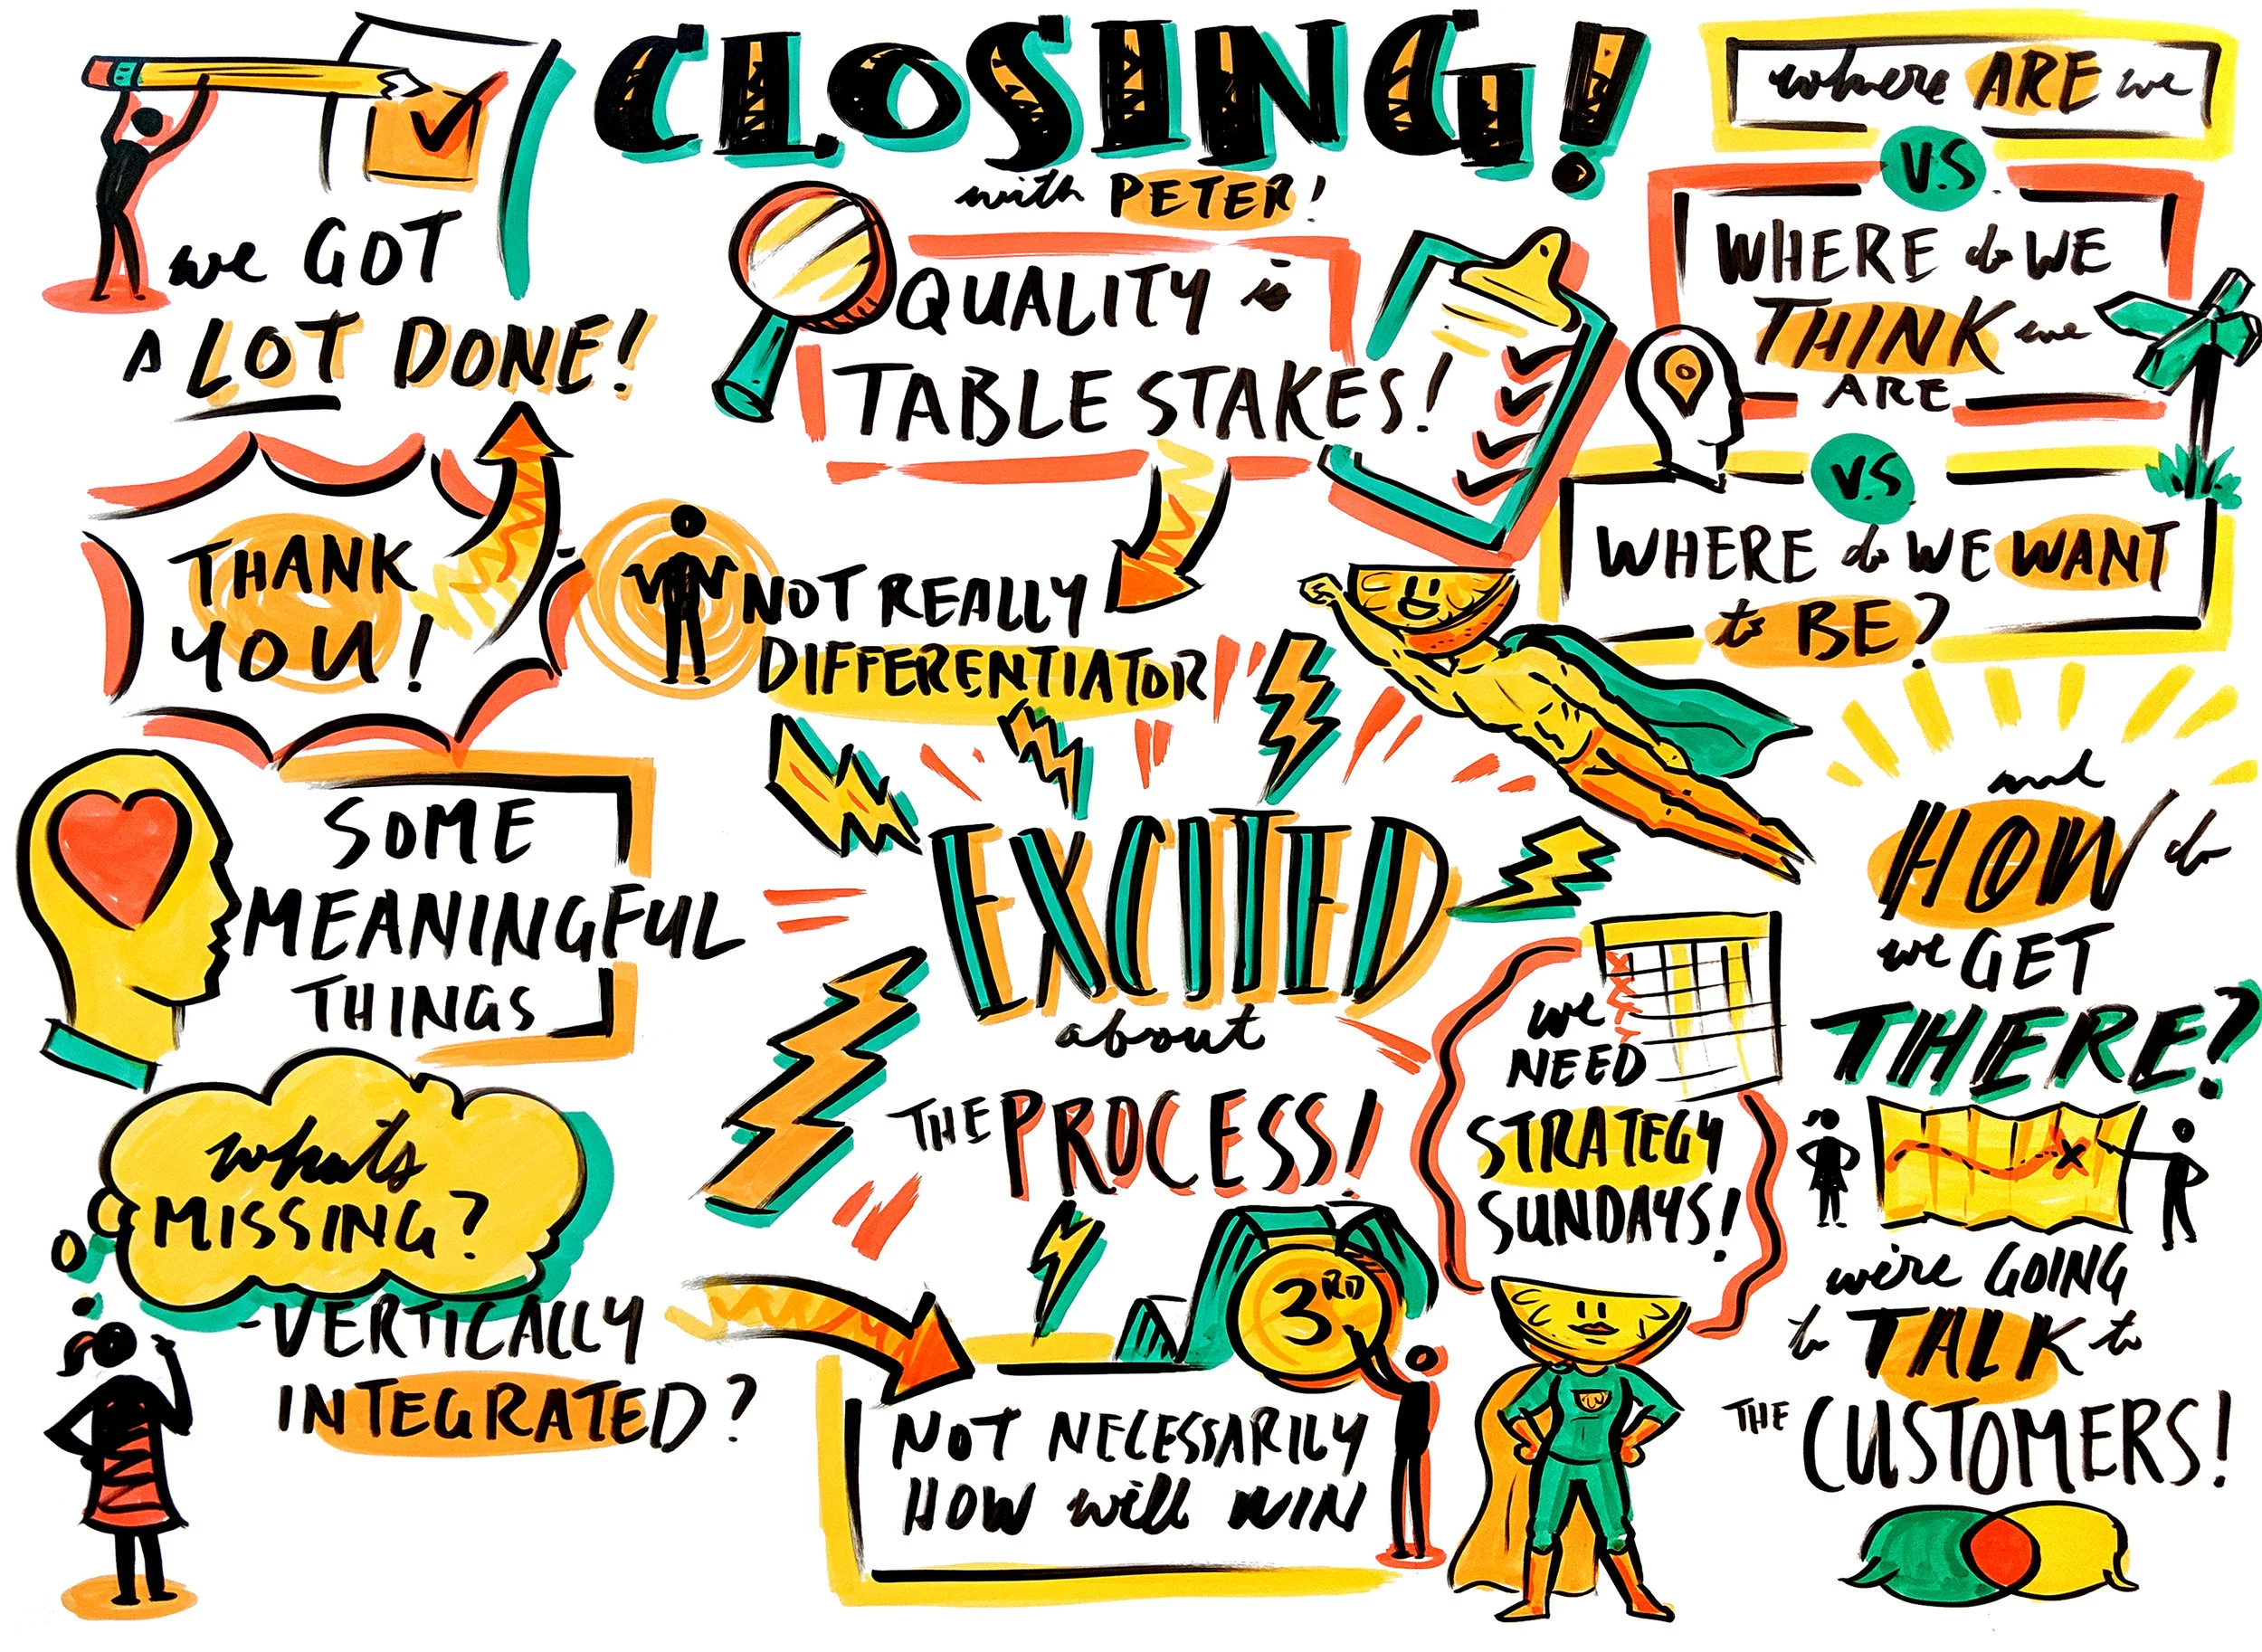 CLOSING!
with PETER!
we GOT
A LOT DONE!
THANK
YOU!
SOME
MEANINGFUL
THINGS
what's
MISSING?
-VERTICALLY
INTEGRATED?
QUALITY is
TABLE STAKES!
NOT REALLY
DIFFERENTIATOR
EXCITED
about
THE PROCESS!
3RD
NOT NECESSARILY
HOW will WIN
we
NEED
STRATEGY
SUNDAYS!
where ARE we
V.S
WHERE do WE
THINK we
ARE
V.S
WHERE do WE WANT
to BE?
and
HOW do
we GET
THERE?
we're GOING
to TALK to
THE CUSTOMERS!